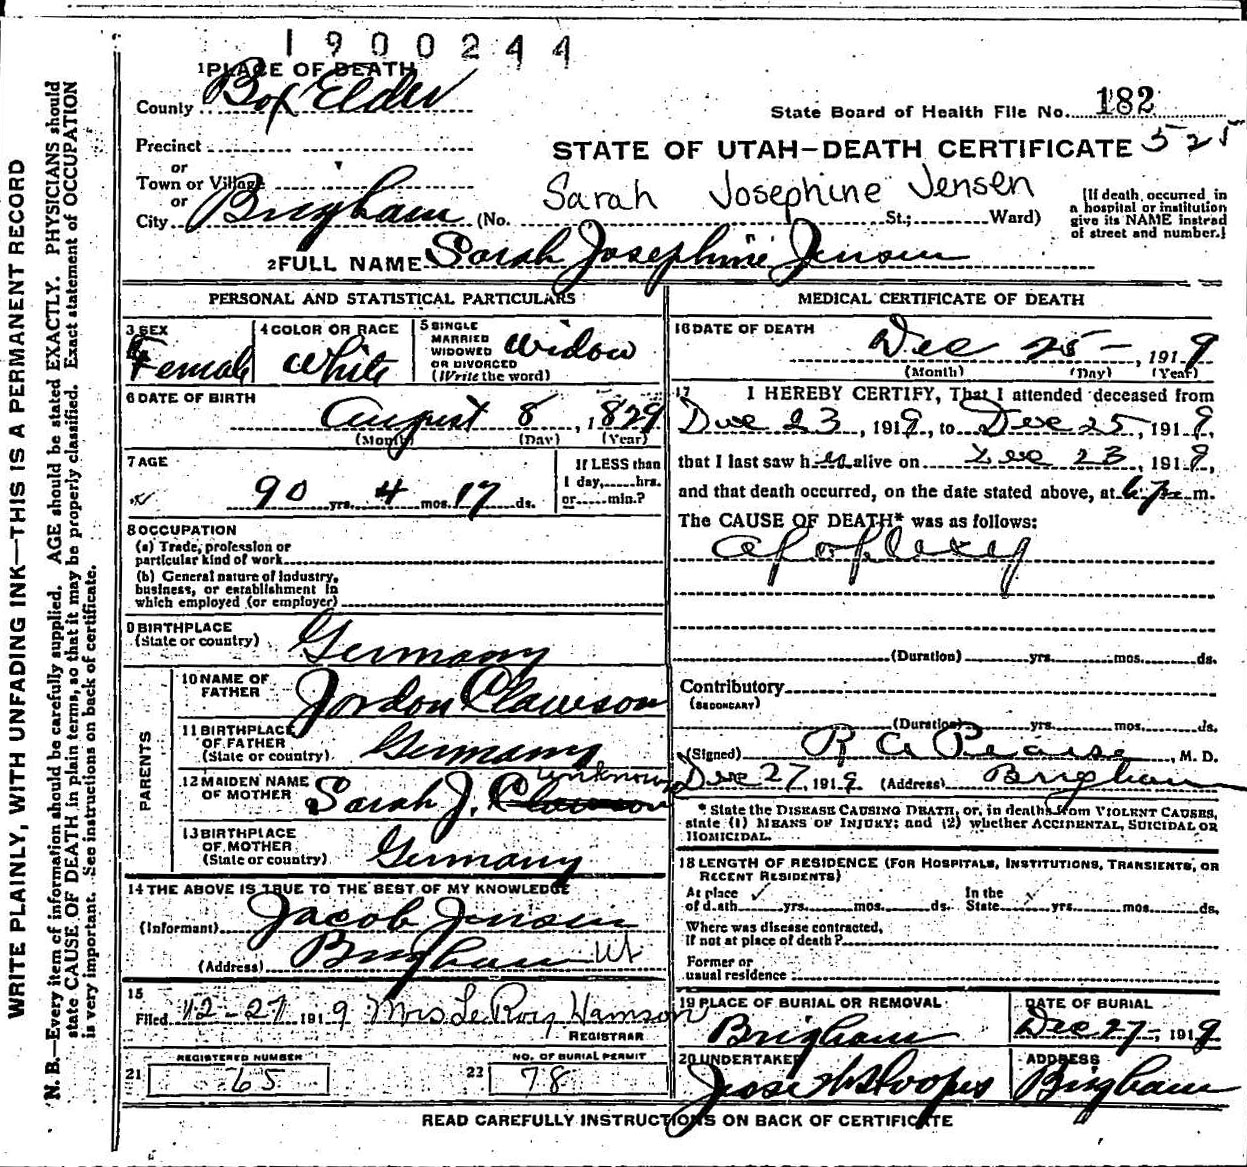 1900244
1 PLACE OF DEATH
County Box Elder
State Board of Health File No. 182
Precinct
or
Town or Village
or
City Brigham (No. St.; Ward)
STATE OF UTAH—DEATH CERTIFICATE 525
Sarah Josephine Jensen
[If death occurred in
a hospital or institution
give its NAME instead
of street and number.]
2 FULL NAME Sarah Josephine Jensen
PERSONAL AND STATISTICAL PARTICULARS
3 SEX
Female
4 COLOR OR RACE
White
5 SINGLE
MARRIED
WIDOWED
OR DIVORCED
(Write the word)
Widow
6 DATE OF BIRTH
August 8, 1829
(Month) (Day) (Year)
7 AGE
90 yrs. 4 mos. 17 ds.
If LESS than
1 day, hrs.
or min.?
8 OCCUPATION
(a) Trade, profession or
particular kind of work
(b) General nature of industry,
business, or establishment in
which employed (or employer)
9 BIRTHPLACE
(State or country) Germany
PARENTS
10 NAME OF
FATHER Jordon Clawson
11 BIRTHPLACE
OF FATHER
(State or country) Germany
12 MAIDEN NAME
OF MOTHER Sarah J. Clawson unknown
13 BIRTHPLACE
OF MOTHER
(State or country) Germany
14 THE ABOVE IS TRUE TO THE BEST OF MY KNOWLEDGE
(Informant) Jacob Jensen
(Address) Brigham Ut
15
Filed 12-27 1919 Mrs LeRoy Hamson
REGISTRAR
REGISTERED NUMBER
21 65
NO. OF BURIAL PERMIT
22 78
MEDICAL CERTIFICATE OF DEATH
16 DATE OF DEATH
Dec 25-, 1919
(Month) (Day) (Year)
17 I HEREBY CERTIFY, That I attended deceased from
Dec 23, 1919, to Dec 25, 1919,
that I last saw her alive on Dec 23, 1919,
and that death occurred, on the date stated above, at 6 p m.
The CAUSE OF DEATH* was as follows:
apoplexy
(Duration) yrs. mos. ds.
Contributory
(SECONDARY)
(Duration) yrs. mos. ds.
(Signed) R A Pearse, M. D.
Dec 27, 1919 (Address) Brigham
* State the DISEASE CAUSING DEATH, or, in deaths from VIOLENT CAUSES,
state (1) MEANS OF INJURY; and (2) whether ACCIDENTAL, SUICIDAL OR
HOMICIDAL.
18 LENGTH OF RESIDENCE (FOR HOSPITALS, INSTITUTIONS, TRANSIENTS, OR
RECENT RESIDENTS)
At place
of death yrs. mos. ds.
In the
State yrs. mos. ds.
Where was disease contracted,
if not at place of death?
Former or
usual residence
19 PLACE OF BURIAL OR REMOVAL
Brigham
DATE OF BURIAL
Dec 27-, 1919
20 UNDERTAKER
ADDRESS
Brigham
READ CAREFULLY INSTRUCTIONS ON BACK OF CERTIFICATE
WRITE PLAINLY, WITH UNFADING INK—THIS IS A PERMANENT RECORD
N. B.—Every item of information should be carefully supplied. AGE should be stated EXACTLY. PHYSICIANS should
state CAUSE OF DEATH in plain terms, so that it may be properly classified. Exact statement of OCCUPATION
is very important. See instructions on back of certificate.